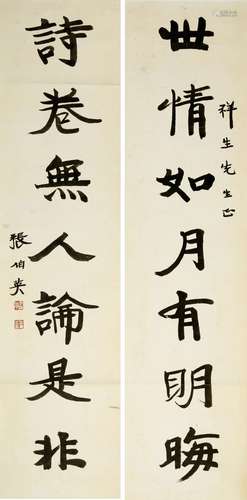 世情如月有明晦
祥生先生正
詩卷無人論是非
張伯英